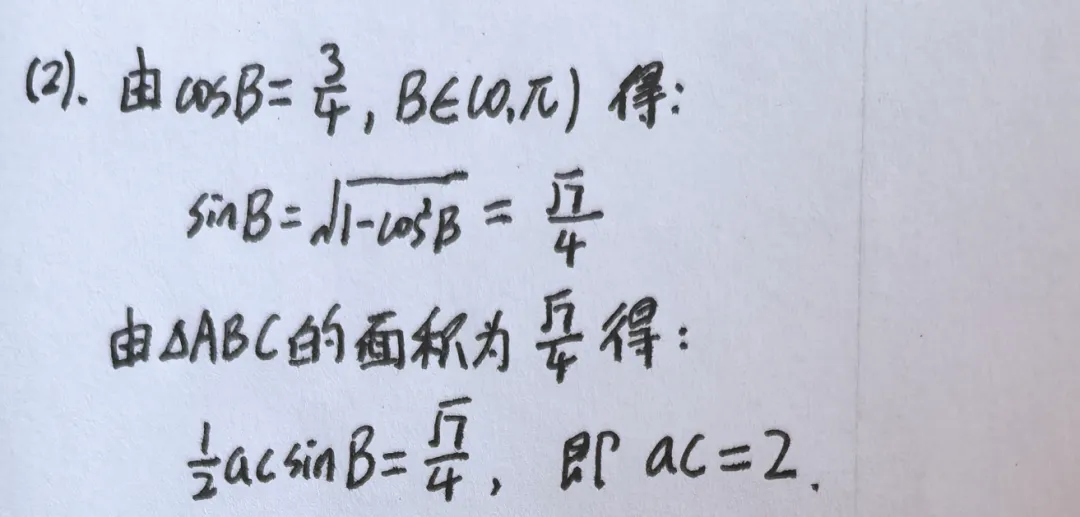 (2). 由 cosB = 3/4, B∈(0,π) 得:
sinB = √(1-cos²B) = √7/4
由△ABC的面积为 √7/4 得:
1/2 ac sinB = √7/4, 即 ac = 2.